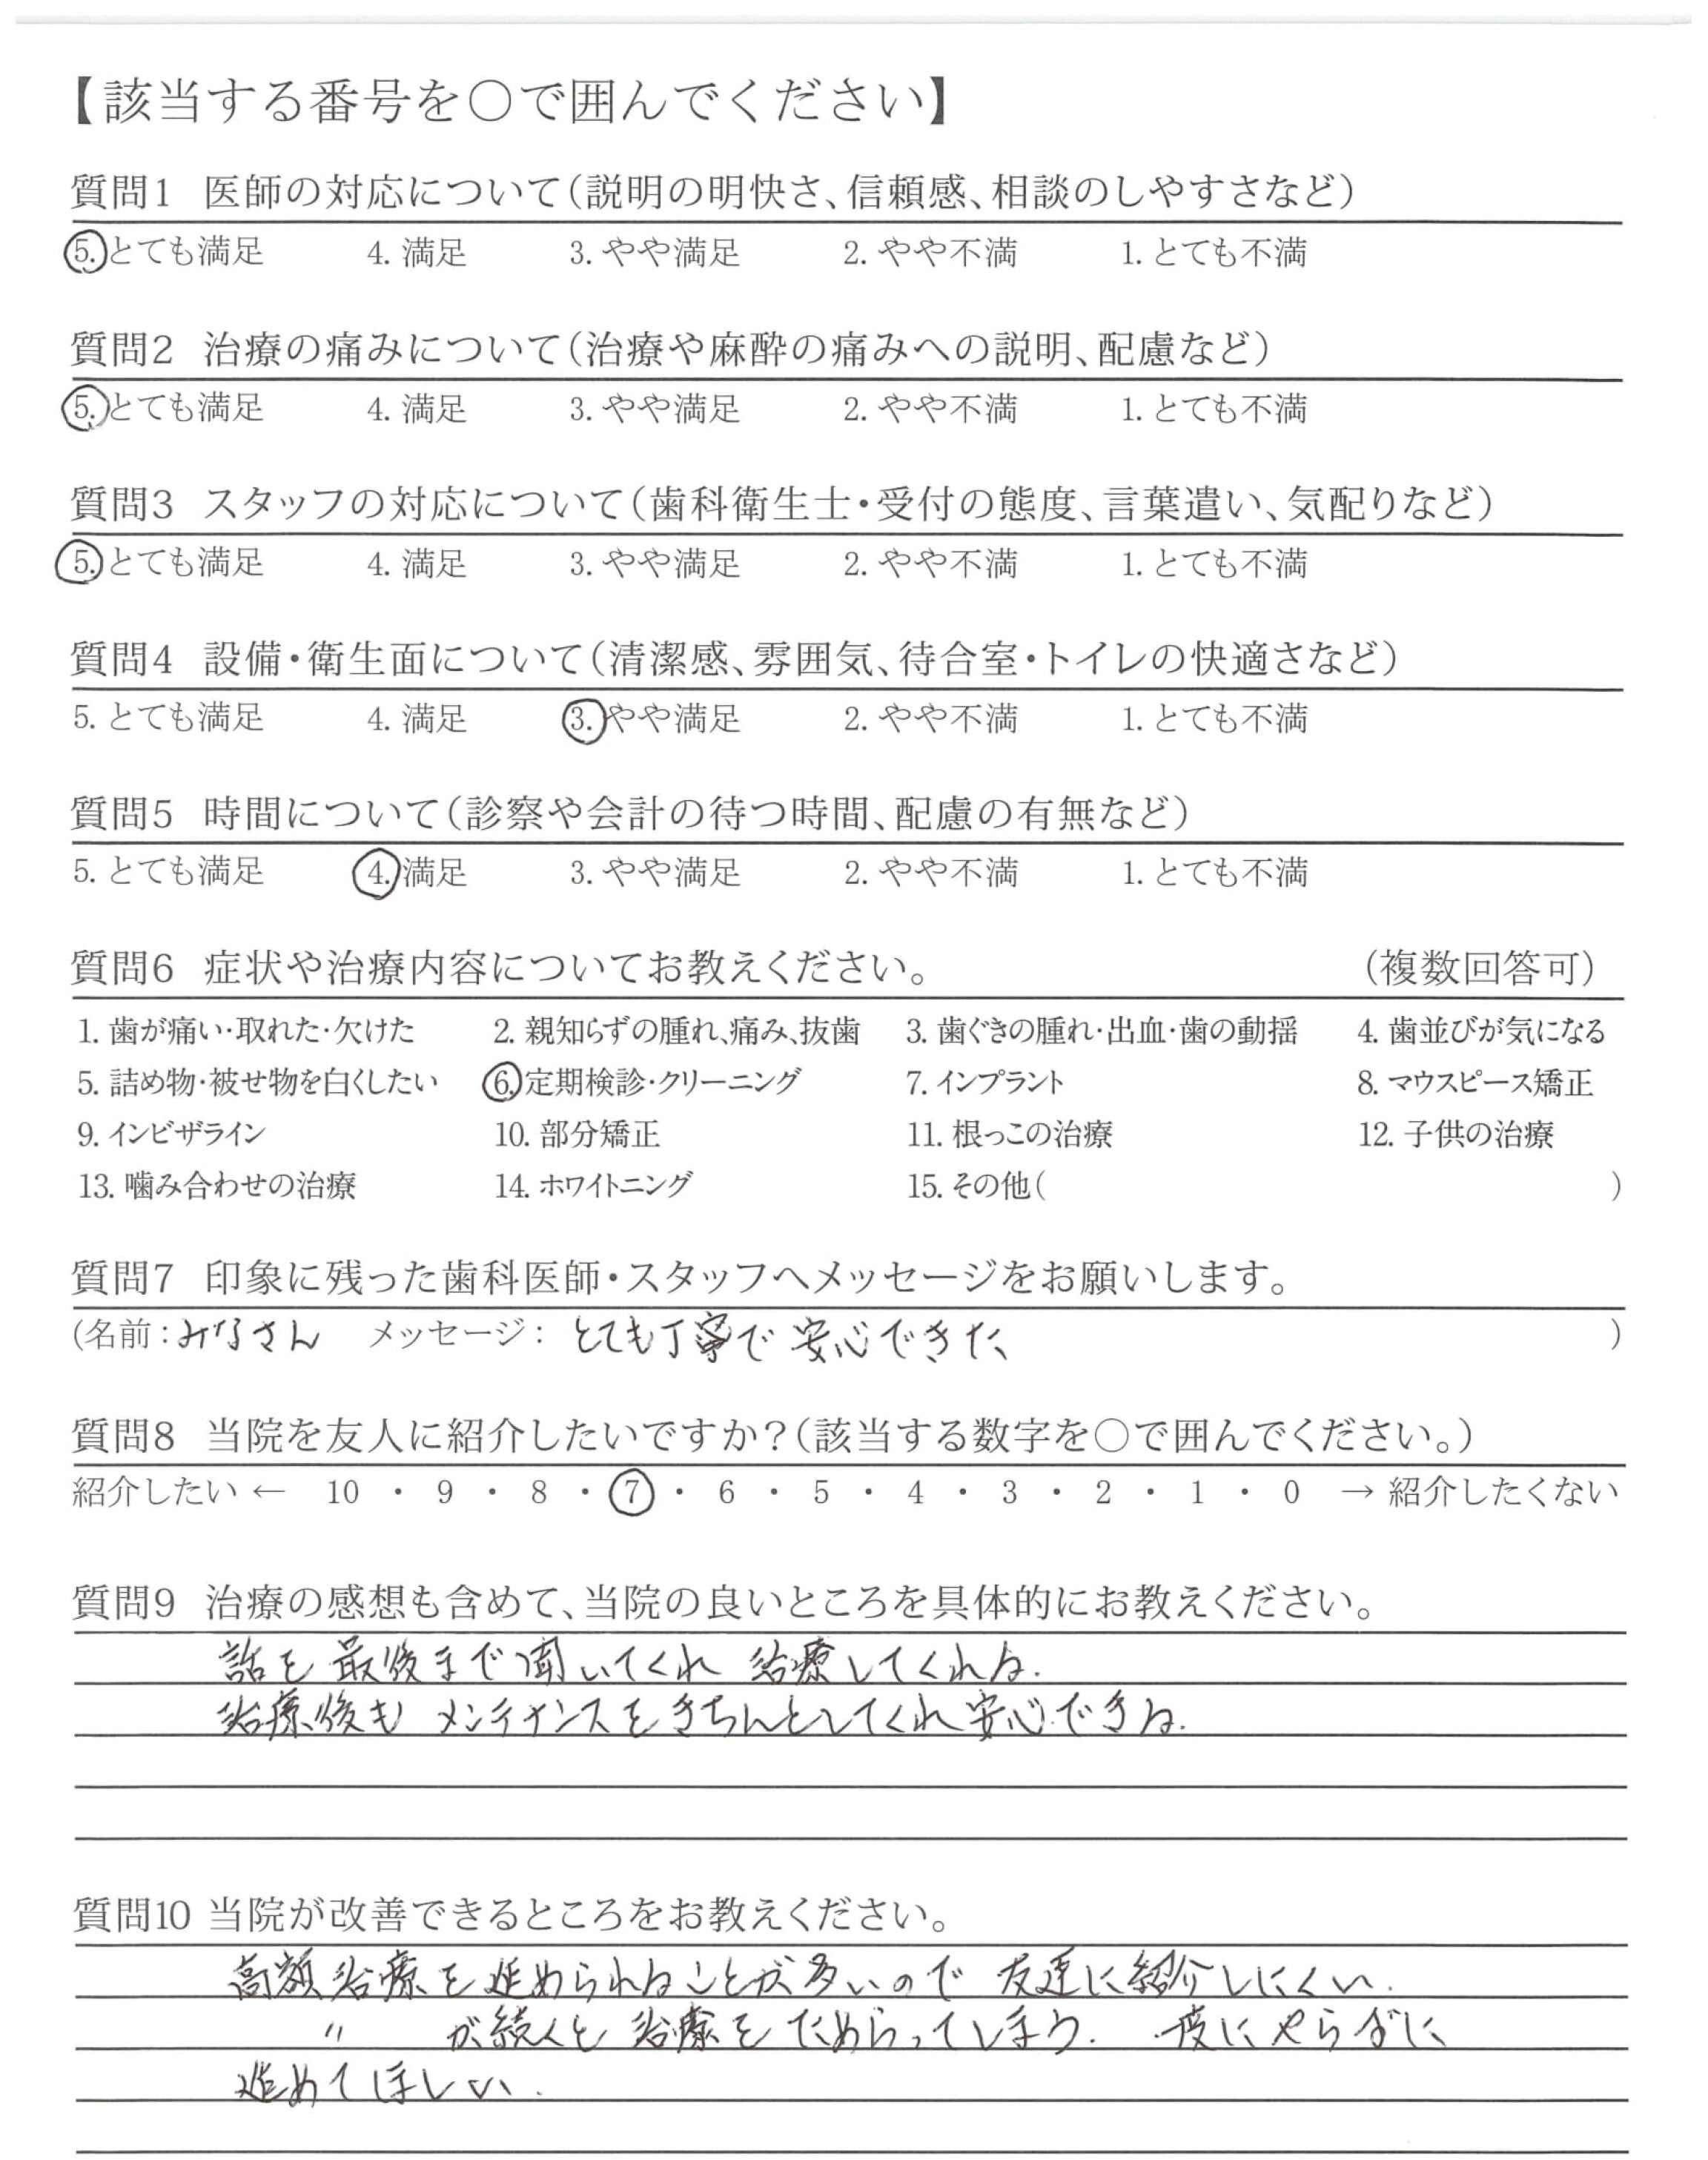 【該当する番号を○で囲んでください】
質問1 医師の対応について(説明の明快さ、信頼感、相談のしやすさなど)
5. とても満足 4. 満足 3. やや満足 2. やや不満 1. とても不満
質問2 治療の痛みについて(治療や麻酔の痛みへの説明、配慮など)
5. とても満足 4. 満足 3. やや満足 2. やや不満 1. とても不満
質問3 スタッフの対応について(歯科衛生士・受付の態度、言葉遣い、気配りなど)
5. とても満足 4. 満足 3. やや満足 2. やや不満 1. とても不満
質問4 設備・衛生面について(清潔感、雰囲気、待合室・トイレの快適さなど)
5. とても満足 4. 満足 3. やや満足 2. やや不満 1. とても不満
質問5 時間について(診察や会計の待つ時間、配慮の有無など)
5. とても満足 4. 満足 3. やや満足 2. やや不満 1. とても不満
質問6 症状や治療内容についてお教えください。 (複数回答可)
1. 歯が痛い・取れた・欠けた 2. 親知らずの腫れ、痛み、抜歯 3. 歯ぐきの腫れ・出血・歯の動揺 4. 歯並びが気になる
5. 詰め物・被せ物を白くしたい 6. 定期検診・クリーニング 7. インプラント 8. マウスピース矯正
9. インビザライン 10. 部分矯正 11. 根っこの治療 12. 子供の治療
13. 噛み合わせの治療 14. ホワイトニング 15. その他( )
質問7 印象に残った歯科医師・スタッフへメッセージをお願いします。
(名前：みなさん メッセージ： とても丁寧で 安心できた )
質問8 当院を友人に紹介したいですか？(該当する数字を○で囲んでください。)
紹介したい ← 10 ・ 9 ・ 8 ・ 7 ・ 6 ・ 5 ・ 4 ・ 3 ・ 2 ・ 1 ・ 0 → 紹介したくない
質問9 治療の感想も含めて、当院の良いところを具体的にお教えください。
話を最後まで聞いてくれ 治療してくれる.
治療後も メンテナンスをきちんとしてくれ安心できる.
質問10 当院が改善できるところをお教えください。
高額治療を進められることが多いので 友達に紹介しにくい.
〃 が続くと 治療をためらってしまう. 一度にやらずに
進めてほしい.